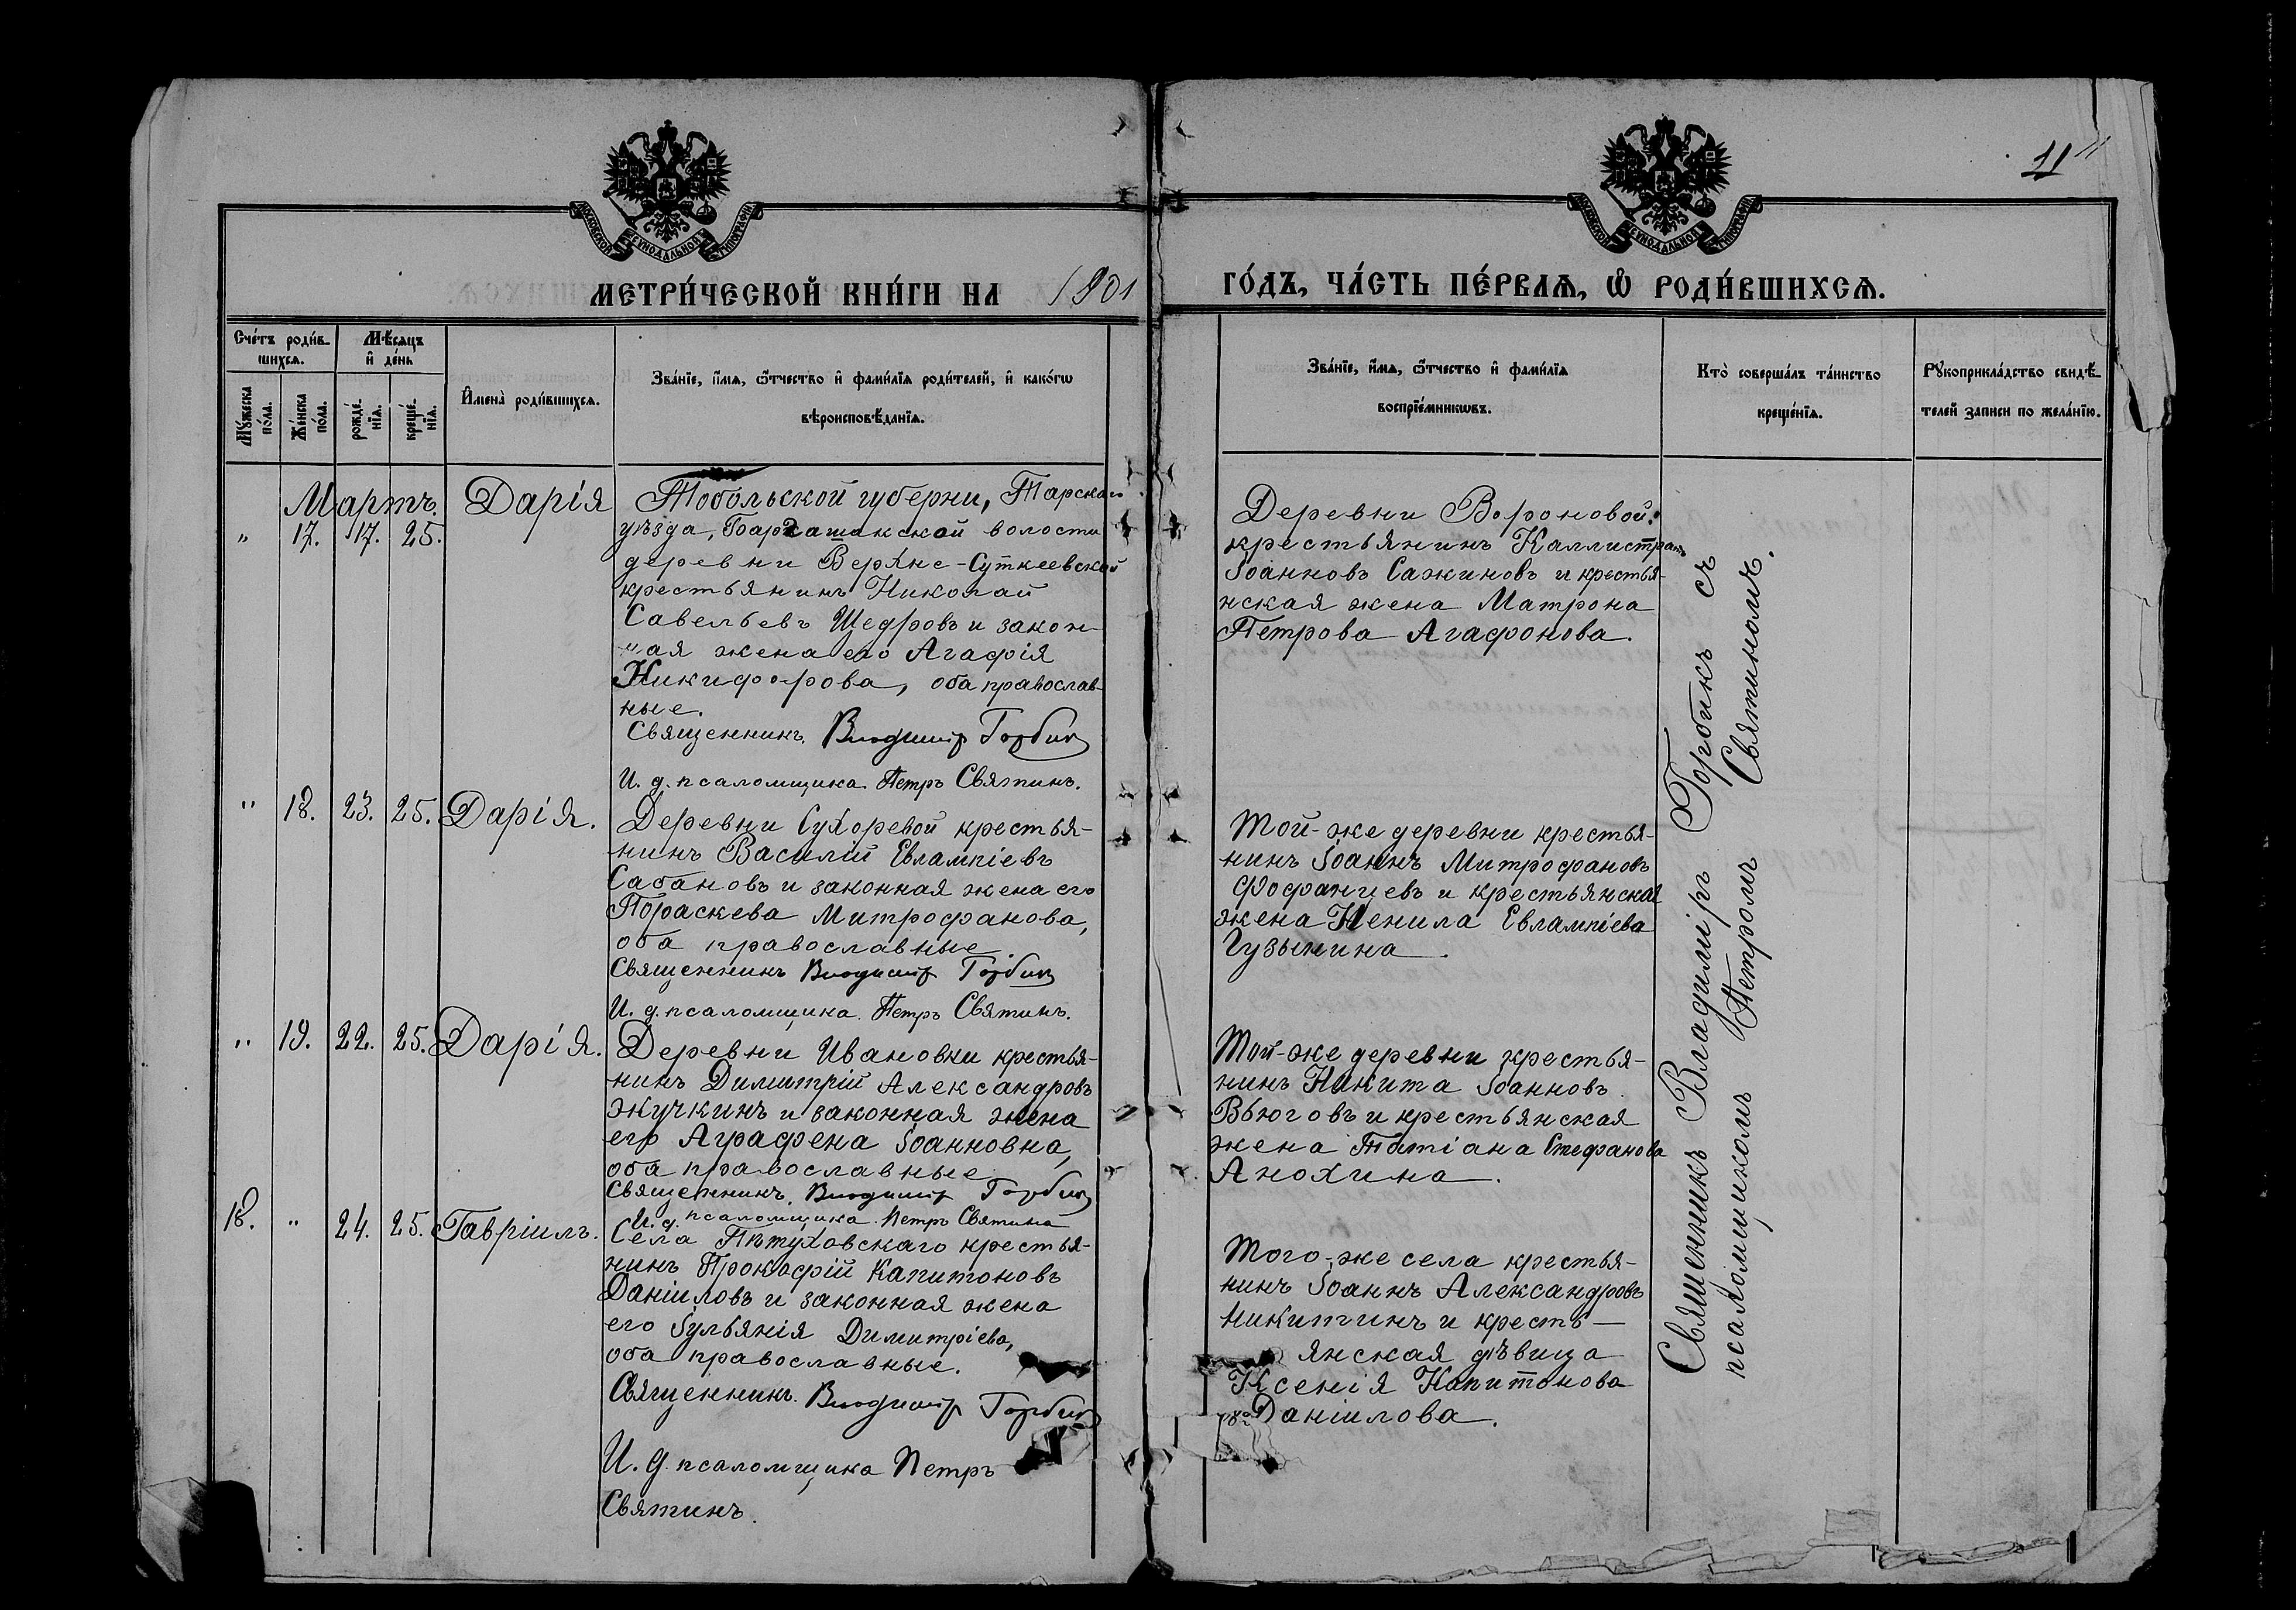 11
МОСКОВСКОЙ СУНОДАЛЬНОЙ ТИПОГРАФІИ
МОСКОВСКОЙ СУНОДАЛЬНОЙ ТИПОГРАФІИ
МЕТРИ́ЧЕСКОЙ КНИ́ГИ НА 1901
ГО́ДЪ, ЧА́СТЬ ПЕ́РВАѦ, Ѡ҆ РОДИ́ВШИХСѦ.
Сче́тъ роди́в-
шихсѧ.
Мѣ́сѧцъ
и҆ де́нь
Мꙋ́жеска
по́ла.
Же́нска
по́ла.
рожде́-
нїѧ.
креще́-
нїѧ.
И҆мена̀ роди́вшихсѧ.
Зва́нїе, и҆́мѧ, ѻ҆́тчество и҆ фами́лїѧ роди́телей, и҆ како́гѡ
вѣроисповѣ́данїѧ.
Зва́нїе, и҆́мѧ, ѻ҆́тчество и҆ фами́лїѧ
воспрїе́мникѡвъ.
Кто̀ соверша́лъ та́инство
креще́нїѧ.
Рꙋкоприкла́дство свидѣ́-
телей записи по жела́нїю.
Мартъ.
" 17. 17. 25.
Дарія
Тобольской губерни, Тарскаго
уѣзда, волости
деревни Верхне-Суткеевской
крестьянинъ Николай
Савельевъ Щедровъ и закон-
ная жена его Агафія
Никифорова, оба православ-
ные.
Священникъ. Владиміръ Горбикъ
И. д. псаломщика Петръ Святинъ.
Деревни Вороновой:
крестьянинъ Каллистратъ
Іоанновъ Сажиновъ и крестья-
нская жена Матрона
Петрова Агафонова.
" 18. 23. 25. Дарія.
Деревни Сухоревой крестья-
нинъ Василій Евлампіевъ
Сабановъ и законная жена его
Параскева Митрофанова,
оба православные.
Священникъ Владиміръ Горбикъ
И. д. псаломщика. Петръ Святинъ.
Той-же деревни крестья-
нинъ Іоаннъ Митрофановъ
Фофанцевъ и крестьянская
жена Ненила Евлампіева
Гузынина.
" 19. 22. 25. Дарія.
Деревни Ивановки крестья-
нинъ Димитрій Александровъ
Жучкинъ и законная жена
его Аграфена Іоанновна,
оба православные
Священникъ. Владиміръ Горбикъ
И. д. псаломщика. Петръ Святинъ
Той-же деревни крестья-
нинъ Никита Іоанновъ
Вьюговъ и крестьянская
жена Татіана Стефанова
Анохина.
18. " 24. 25. Гавріилъ.
Села Пѣтуховскаго крестья-
нинъ Прокофій Капитоновъ
Даніиловъ и законная жена
его Іульянія Димитріева,
оба православные.
Священникъ. Владиміръ Горбикъ
И. д. псаломщика Петръ
Святинъ.
Того-же села крестья-
нинъ Іоаннъ Александровъ
Никитинъ и кресть-
янская дѣвица
Ксенія Капитонова
Даніилова.
Священникъ Владиміръ Горбикъ съ
псаломщикомъ Петромъ Святиномъ.